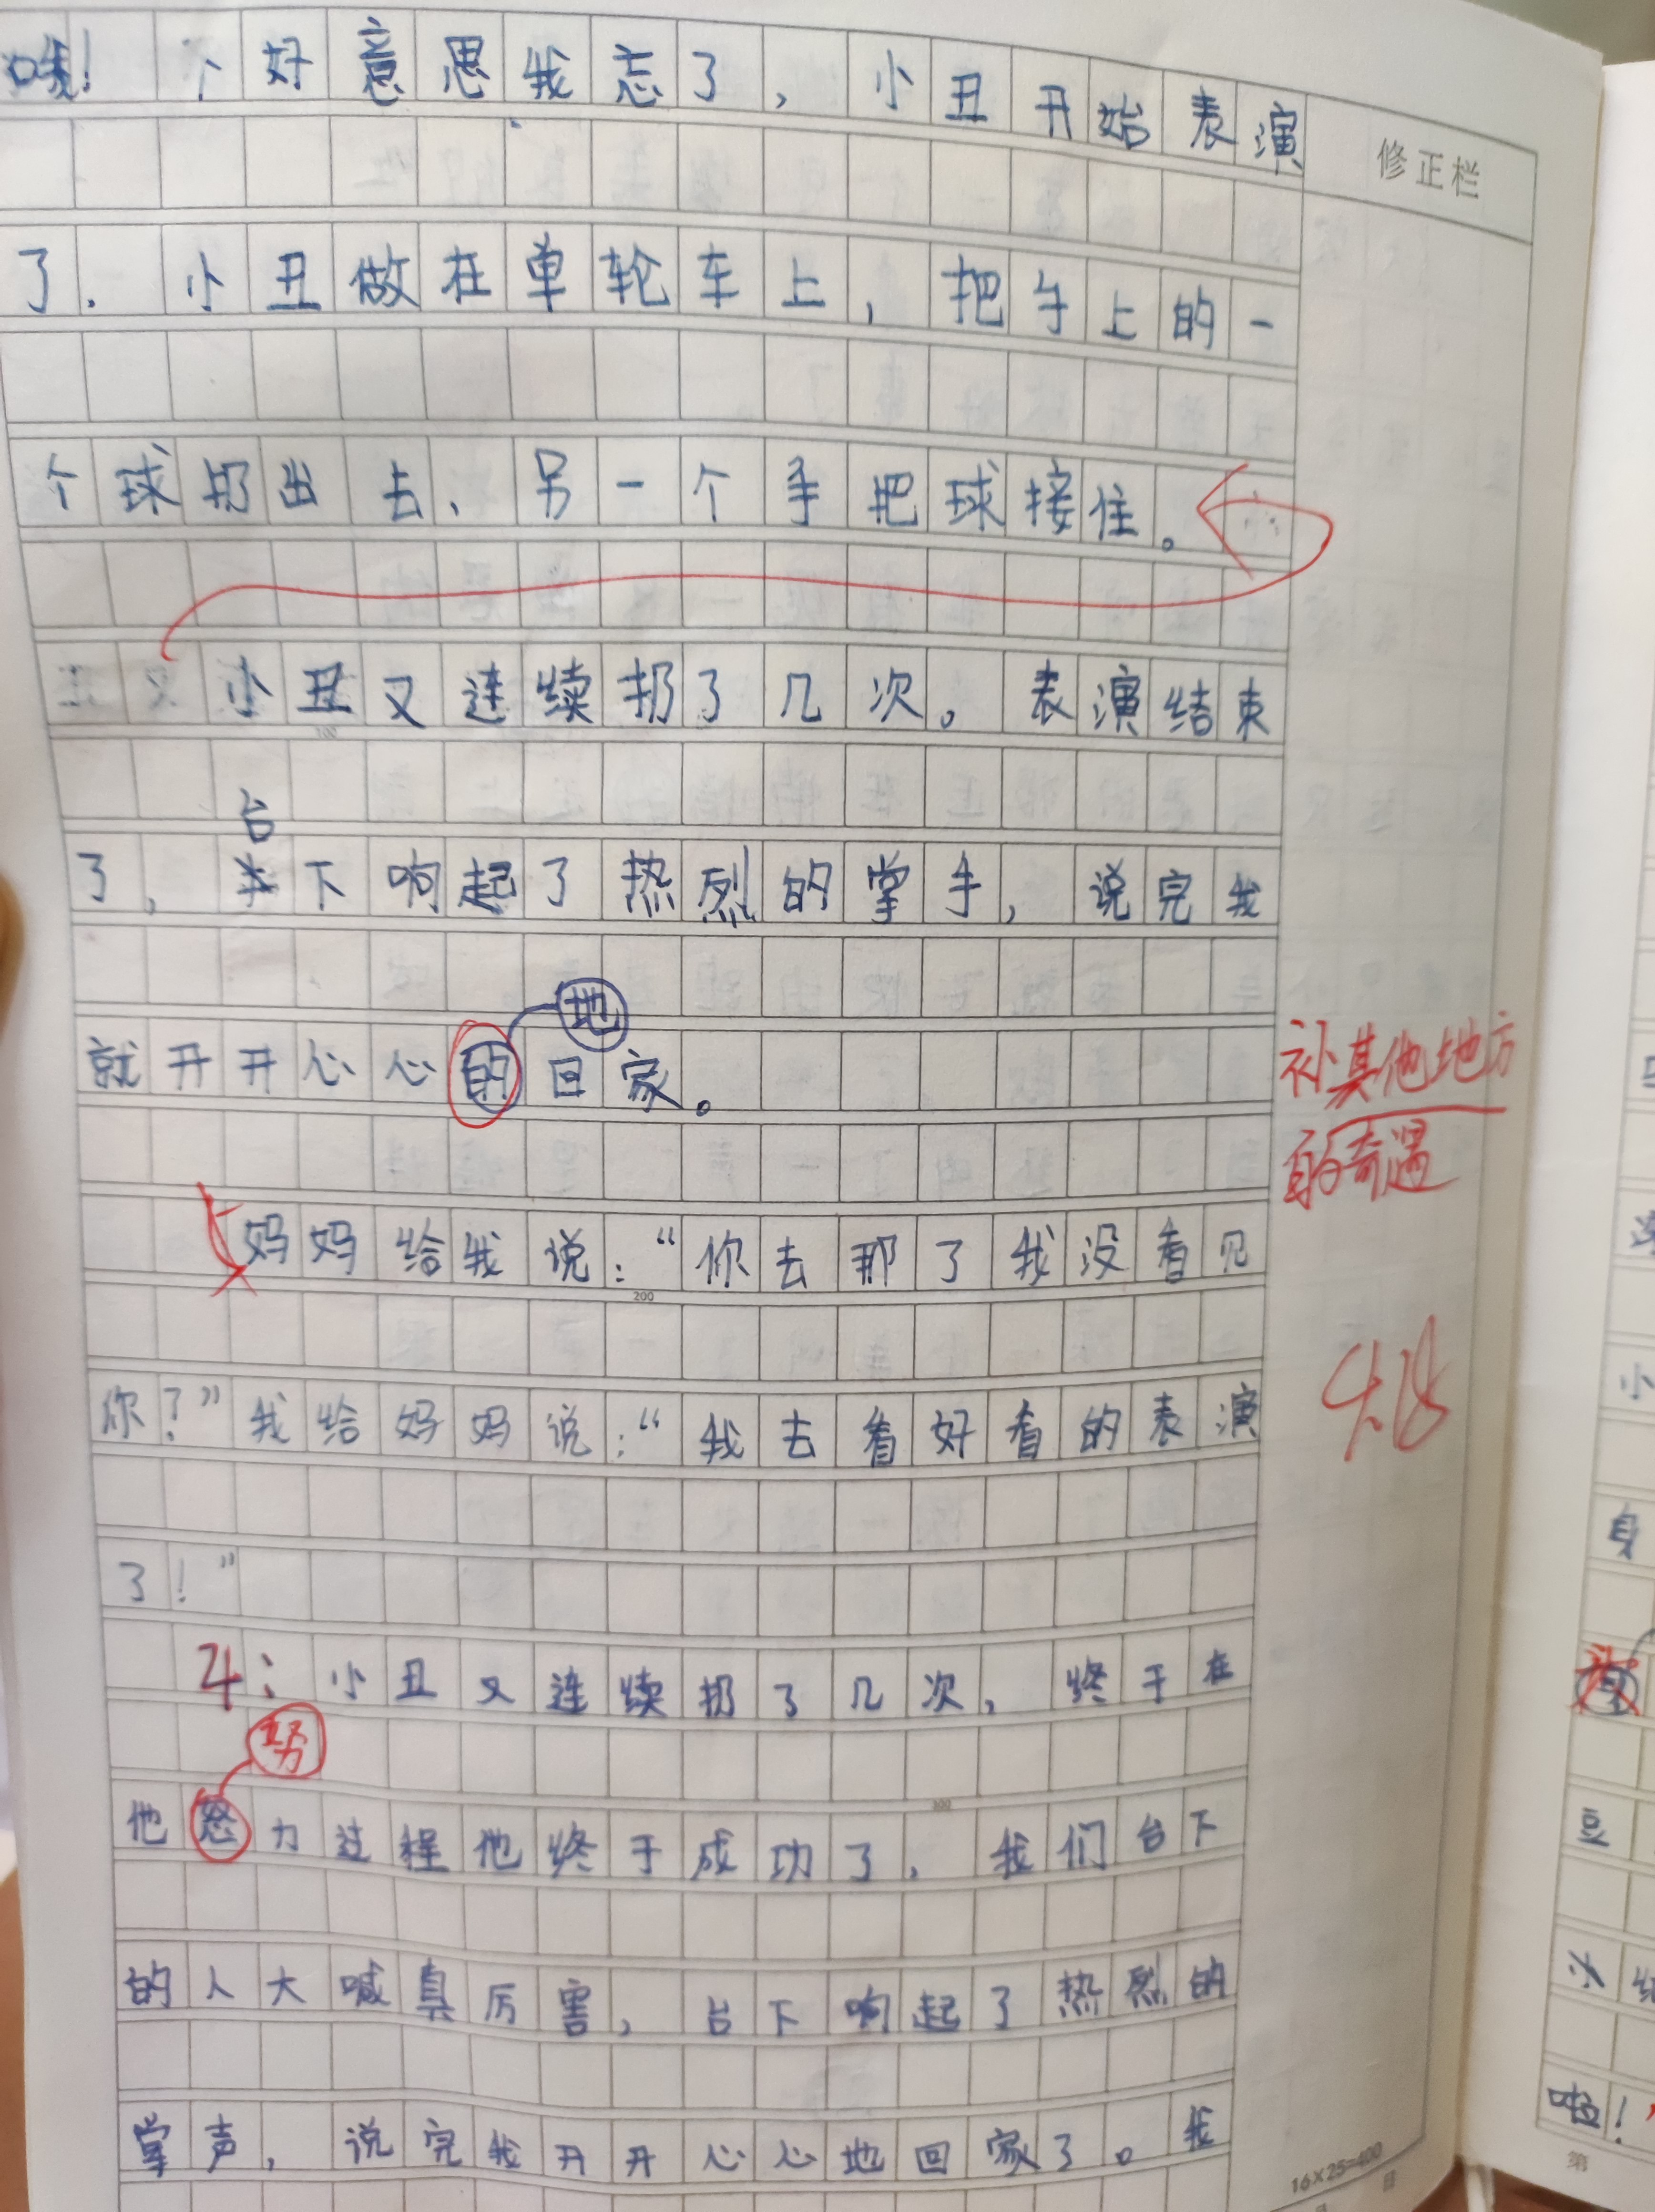 哦！不好意思我忘了，小丑开始表演
修正栏
了．小丑做在单轮车上，把手上的一
个球扔出去，另一个手把球接住。
小丑又连续扔了几次。表演结束
台
了，下响起了热烈的掌手，说完我
地
就开开心心的回家。
补其他地方
的奇遇
妈妈给我说：“你去那了我没看见
200
你？”我给妈妈说：“我去看好看的表演
了！”
4：小丑又连续扔了几次，终于在
努
他怒力过程他终于成功了，我们台下
300
的人大喊真厉害，台下响起了热烈的
掌声，说完我开开心心地回家了。我
16×25=400